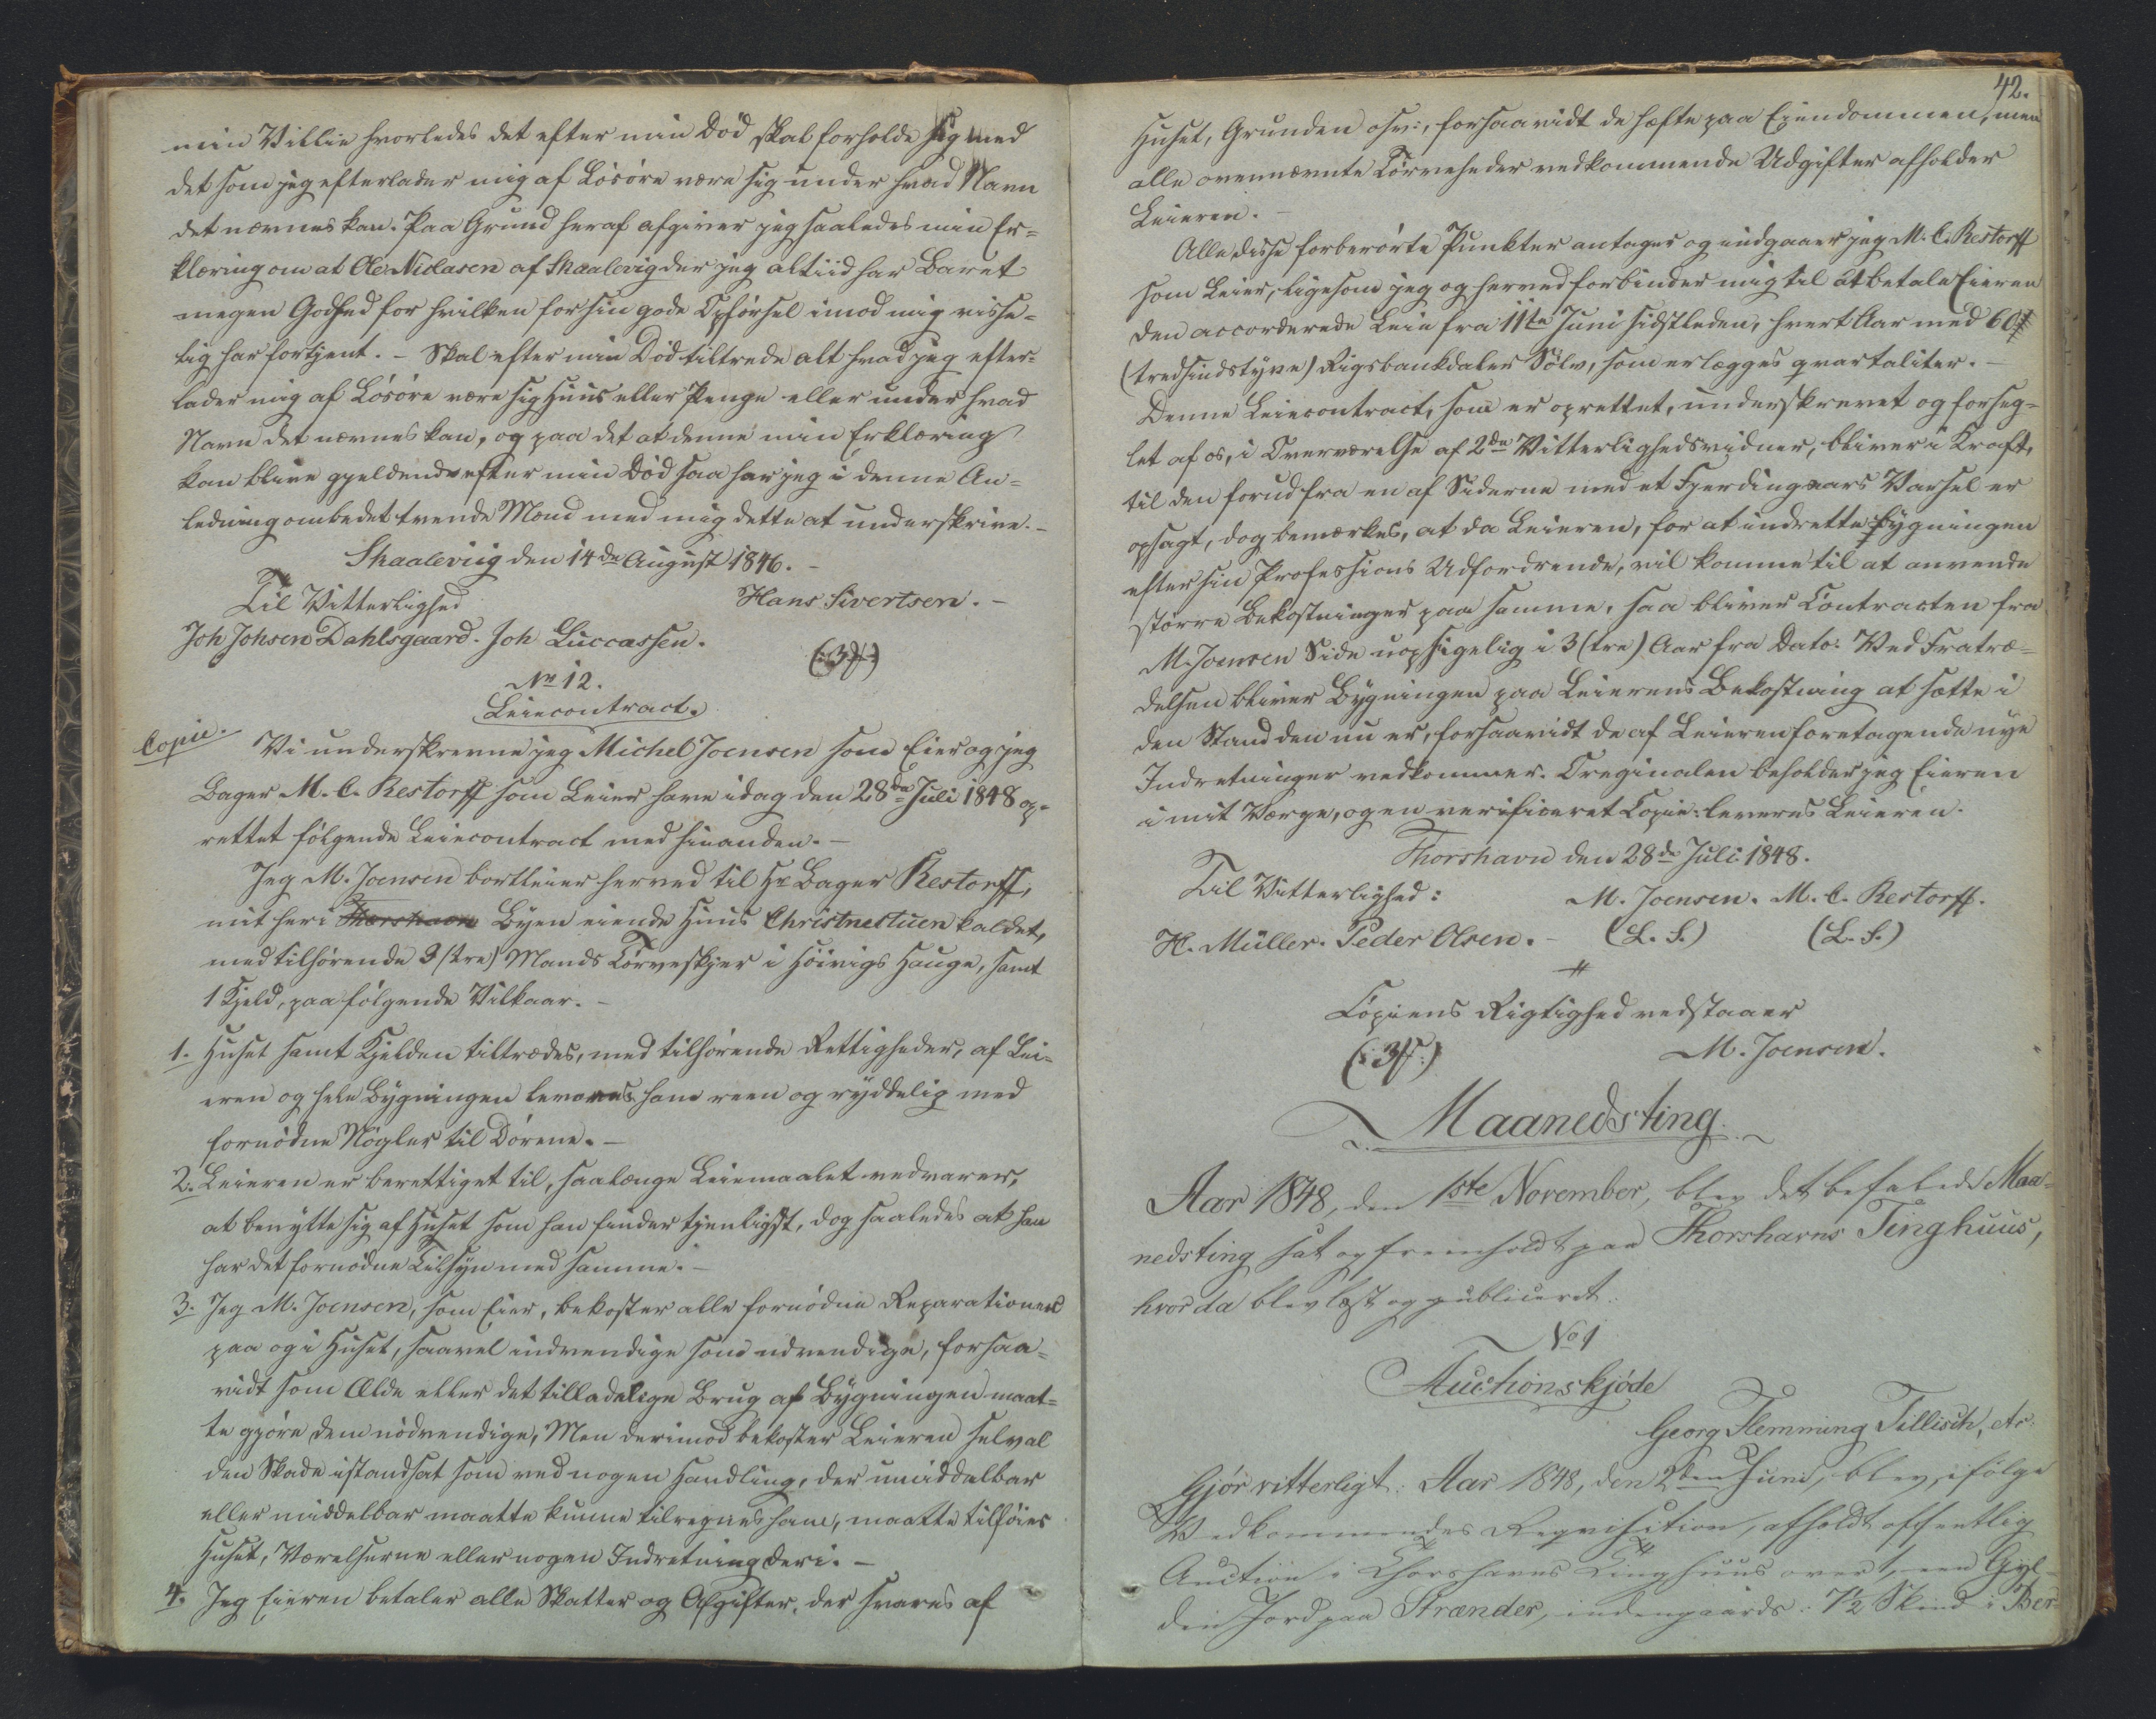 min Villie hvorledes det efter min Död skal forholde sig med
det som jeg efterlader mig af Lösöre være sig under hvad Navn
det nævnes kan. Paa Grund heraf afgiver jeg saaledes min Er=
klæring om at Ole Niclasen af Skaalevig der jeg altiid har baret
megen Godhed for hvilken for sin gode Opförsel imod mig visse=
lig har fortjent. - Skal efter min Död tiltrede alt hvad jeg efter=
lader mig af Lösöre være sig Huus eller Penge eller under hvad
Navn det nævnes kan, og paa det at denne min Erklæring
kan blive gjeldende efter min Död saa har jeg i denne An=
ledning ombedet tvende Mænd med mig dette at underskrive. -
Skaaleviig den 14de August 1846. -
Til Vitterlighed
Hans Sivertsen. -
Joh Johsen Dahlsgaard. Joh Luccassen.
No 12.
Leiecontract.
Copie.
Vi underskrevne jeg Michel Joensen som Eier og jeg
Bager M. C. Restorff som Leier have idag den 28de Juli 1848 op=
rettet fölgende Leiecontract med hinanden. -
Jeg M. Joensen bortleier herved til Hr Bager Restorff,
mit her i Thorshavn Byen eiende Huus Christnestuen kaldet,
med tilhörende 3 (tre) Mands Törveskjer i Höivigs Hauge, samt
1 Kjeld, paa fölgende Vilkaar. -
1. Huset samt Kjelden tiltrædes, med tilhörende Rettigheder, af Lei=
eren og hele Bygningen leveres ham reen og ryddelig med
fornödne Nögler til Dörene. -
2. Leieren er berettiget til, saalænge Leiemaalet vedvarer,
at benytte sig af Huset som han finder tjenligst, dog saaledes at han
har det fornödne Tilsyn med samme. -
3. Jeg M. Joensen, som Eier, bekoster alle fornödne Reparationer
paa og i Huset, saavel indvendige som udvendige, forsaa=
vidt som Ælde eller det tilladelige Brug af Bygningen maat=
te gjöre dem nödvendige, Men derimod bekoster Leieren selv al
den Skade istandsat som ved nogen Handling, der umiddelbar
eller middelbar maatte kunne tilregnes ham, maatte tilföies
Huset, Værelserne eller nogen Indretning deri. -
4. Jeg Eieren betaler alle Skatter og Afgifter, der svares af
42.
Huset, Grunden osv:, forsaavidt de hæfte paa Eiendommen, men
alle ovennævnte Törveheder vedkommende Udgifter afholder
Leieren. -
Alle disse forberörte Punkter antager og indgaaer jeg M. C. Restorff
som Leier, ligesom jeg og herved forbinder mig til at betale Eieren
den accorderede Leie fra 11te Juni sidstleden, hvert Aar med 60
(tredsindstyve) Rigsbankdaler Sölv, som erlægges qvartaliter. -
Denne Leiecontract, som er oprettet, underskrevet og forseg=
let af os, i Overværelse af 2de Vitterlighedsvidner, bliver i Kraft,
til den forud fra en af Siderne med et Fjerdingaars Varsel er
opsagt, dog bemærkes, at da Leieren, for at indrette Bygningen
efter sin Professions Udfordrende, vil komme til at anvende
större Bekostninger paa samme, saa bliver Contracten fra
M. Joensen Side uopsigelig i 3 (tre) Aar fra Dato. Ved Fratræ=
delsen bliver Bygningen paa Leierens Bekostning at sætte i
den Stand den nu er, forsaavidt de af Leieren foretagende nye
Indretninger vedkommer. Oreginalen beholder jeg Eieren
i mit Værge, og en verificeret Copie leveres Leieren.
Thorshavn den 28de Juli 1848.
Til Vitterlighed:
M. Joensen. M. C. Restorff.
H. Müller. Peder Olsen. - (L. S.) (L. S.)
Copiens Rigtighed vedstaaer
M. Joensen.
Maanedsting.
Aar 1848, den 1ste November, blev det befalede Maa=
nedsting sat og fremholdt paa Thorshavns Tinghuus,
hvor da blev læst og publiceret:
No 1
Auctionskjöde
Georg Flemming Tillisch, etc.
Gjör vitterligt: Aar 1848, den 2den Juni, blev, ifölge
Vedkommendes Reqvisition, afholdt offentlig
Auction i Thorshavns Tinghuus over 1, een Gyl=
den Jord paa Strænder, indengaards: 7½ Skind i Ber